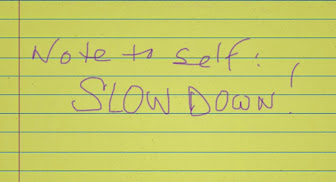 Note to self:
SLOW DOWN!